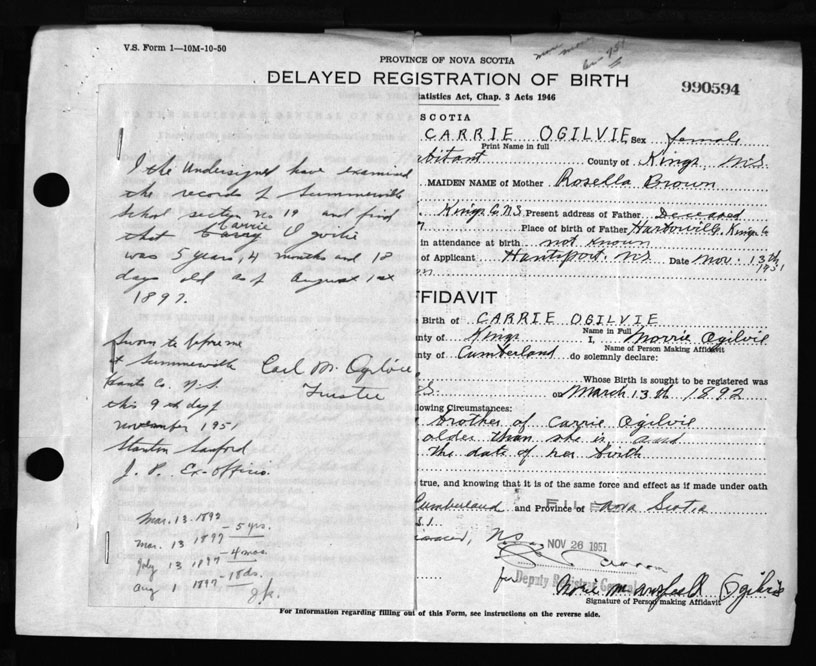 V.S. Form 1—10M-10-50
PROVINCE OF NOVA SCOTIA
DELAYED REGISTRATION OF BIRTH
990594
tatistics Act, Chap. 3 Acts 1946
SCOTIA
CARRIE OGILVIE, Sex female
Print Name in full
bitant County of Kings N.S.
MAIDEN NAME of Mother Rosella Brown
Kings Co. N.S. Present address of Father Deceased
Place of birth of Father Kings Co
in attendance at birth not known
of Applicant Hantsport. N.S Date Nov. 13th
1951
I the Undersigned have examined
the records of Summerville
School section No 19 and find
Carrie
that Carry Ogvilie
was 5 years, 4 months and 18
days old as of August 1st
1897.
Sworn to before me
at Summerville
Hants Co. N.S.
this 9th day of
November 1951
Stanton Sanford
J. P. Ex-officio
Carl M. Ogilvie
Trustee
Mar. 13. 1892
Mar. 13 1897 — 5 yrs.
July 13 1897 — 4 mos.
Aug 1 1897 — 18 ds.
FFIDAVIT
Birth of CARRIE OGILVIE
Name in Full
nty of Kings I, Morrie Ogilvie
Name of Person Making Affidavit
nty of Cumberland do solemnly declare:
Whose Birth is sought to be registered was
S. on March 13th 1892
lowing Circumstances:
brother of Carrie Ogilvie
older than she is and
the date of her birth
true, and knowing it is of the same force and effect as if made under oath
Cumberland and Province of Nova Scotia
FILE
NOV 26 1951
for Deputy Registrar General
Ogilvie
Signature of Person making Affidavit
For Information regarding filling out of this Form, see instructions on the reverse side.